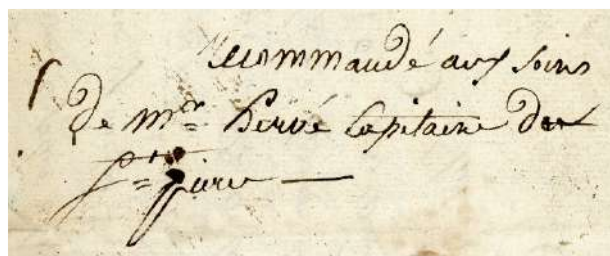 recommandé aux soins
de mr. hervé Capitaine du
st.